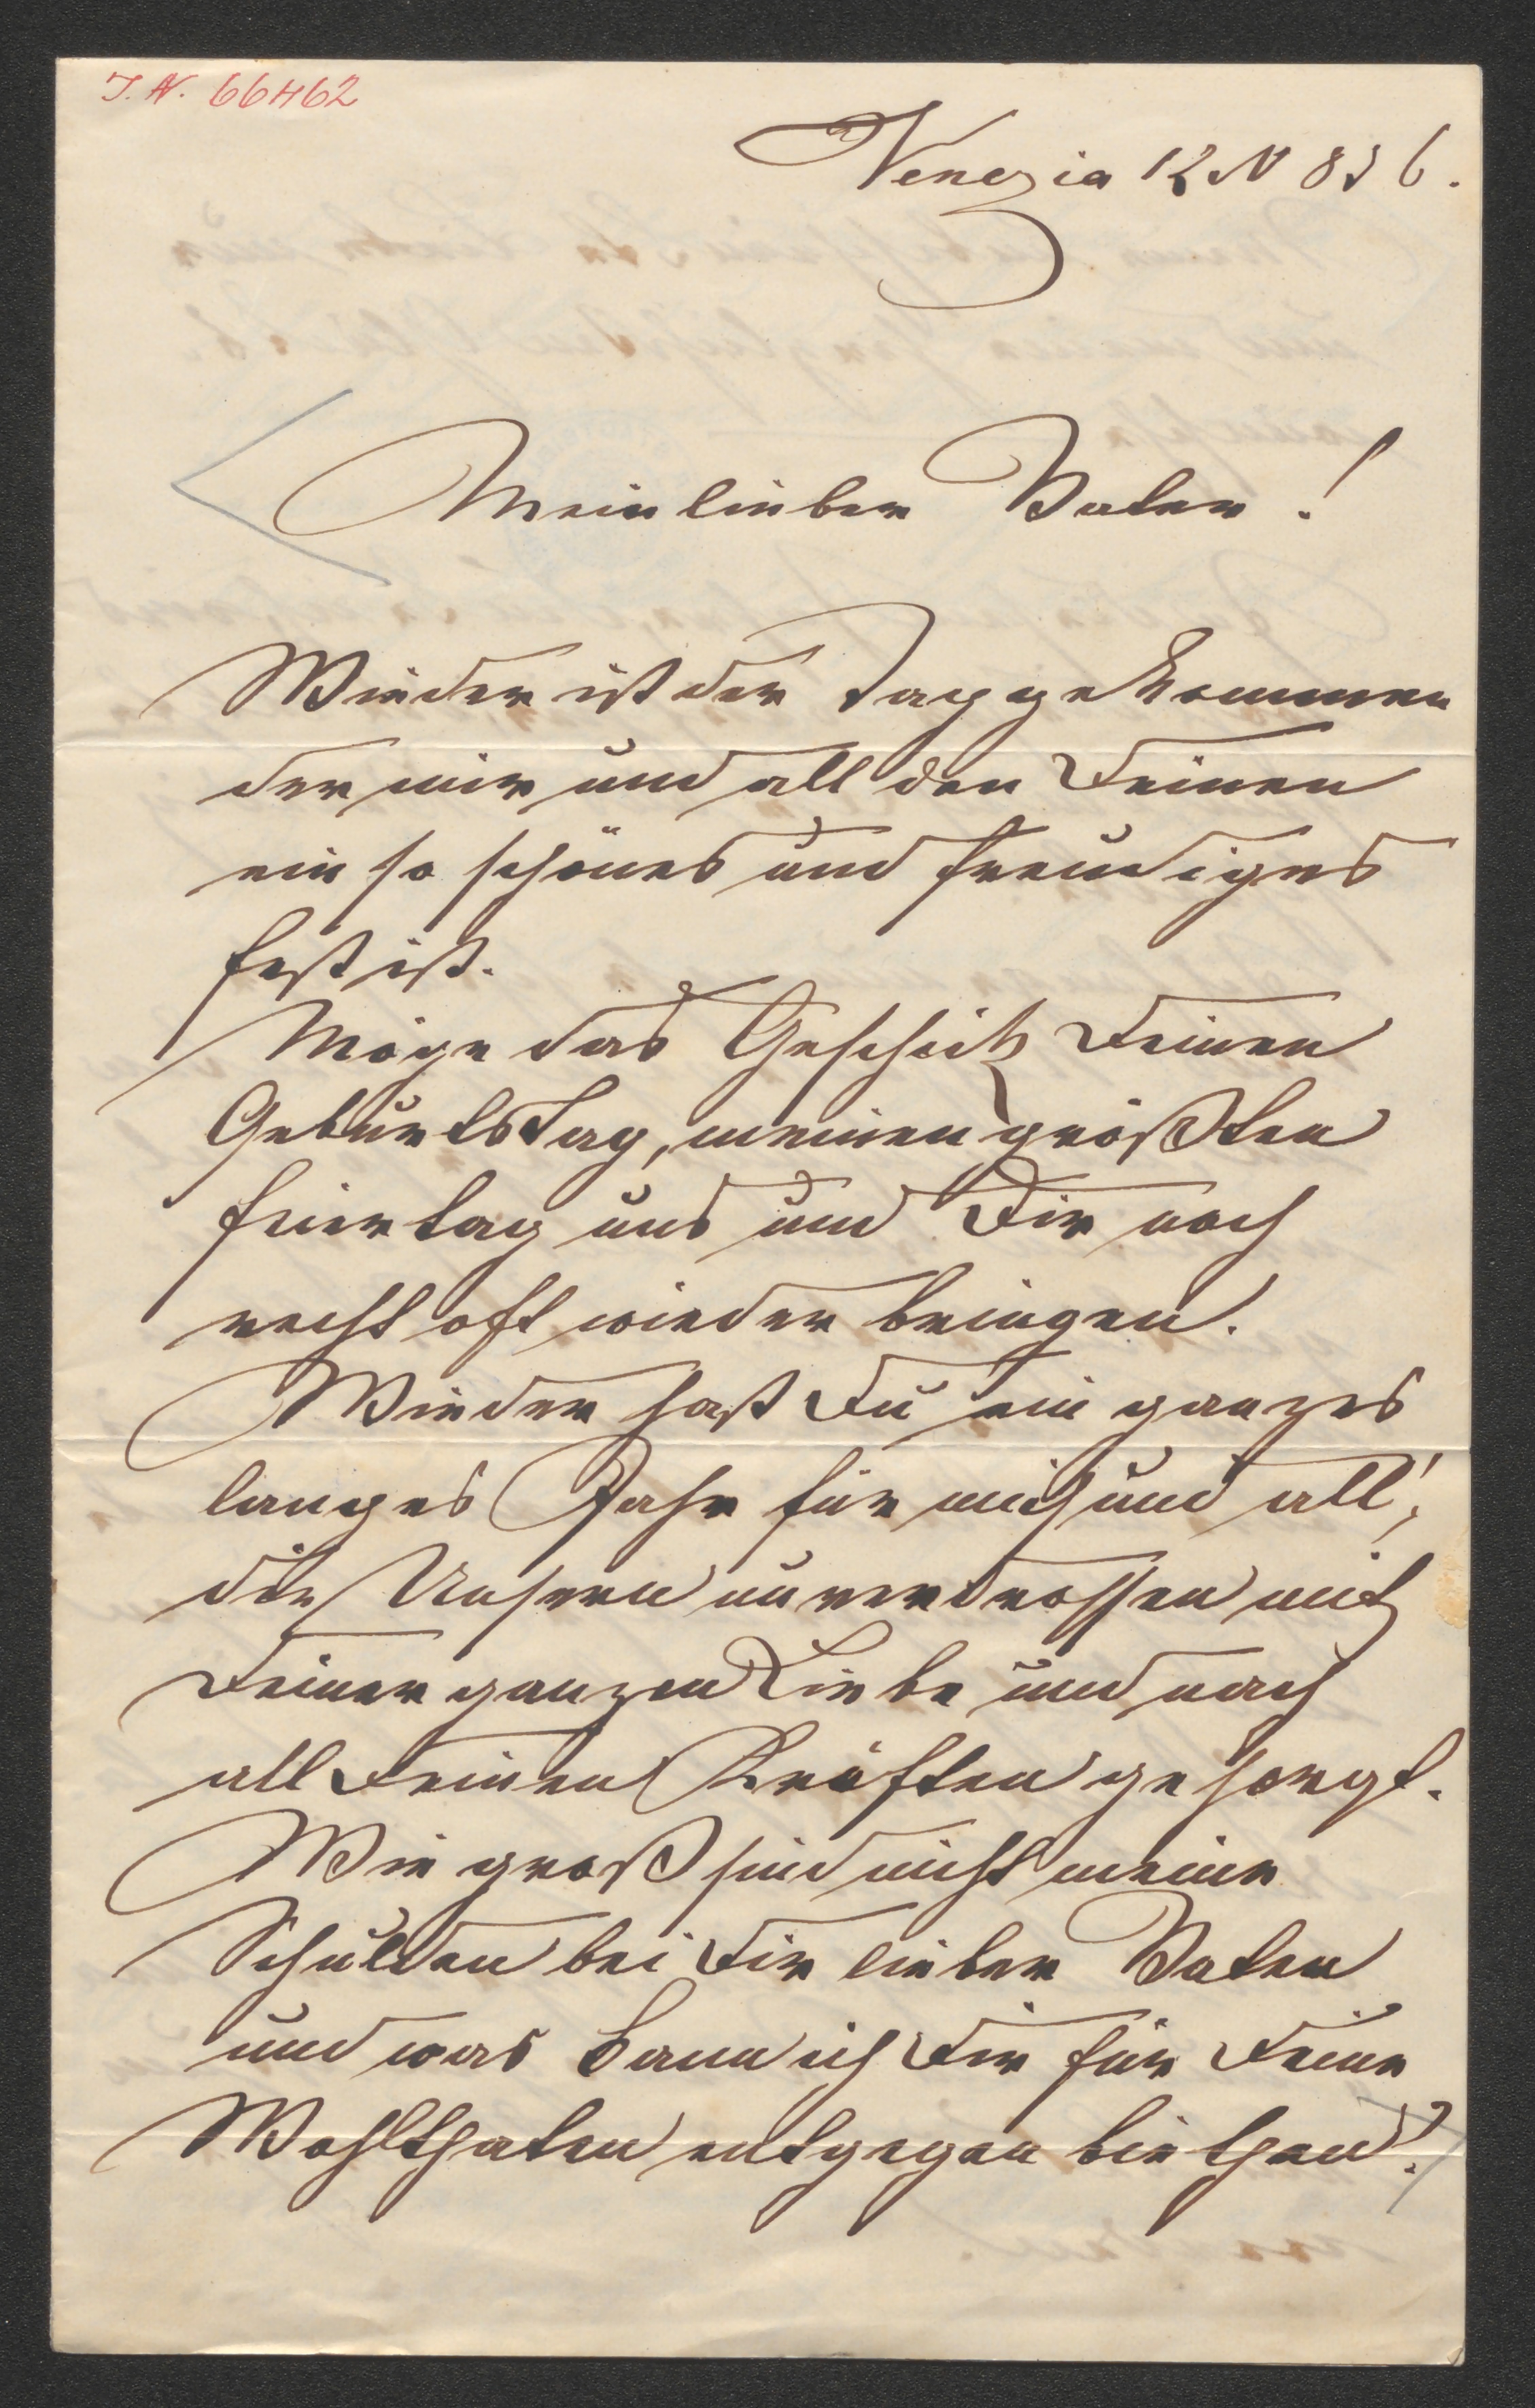 J. N. 66462
Venezia 12 N 856.
Mein lieber Vater!
Wieder ist der Tag gekommen
der mir und all den Deinen
ein so schönes und freudiges
Fest ist.
Möge das Geschick Deinen
Geburtstag, meinen größten
Feiertag uns und Dir noch
recht oft wieder bringen.
Wieder hast Du ein ganzes
langes Jahr für mich und all'
die Unsern unverdrossen mit
Deiner ganzen Liebe und nach
all Deinen Kräften gesorgt.
Wie groß sind nicht meine
Schulden bei Dir lieber Vater
und was kann ich Dir für Deine
Wohlthaten entgegen biethen?